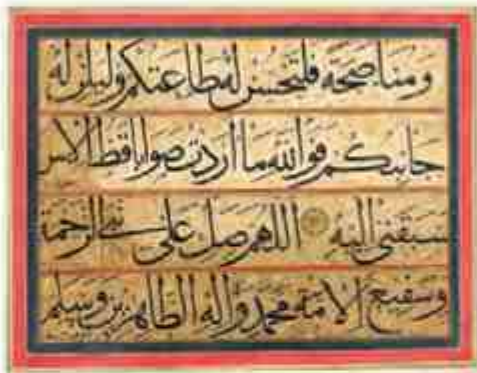 ومناصحة فلتحسن له طاعتكم وليلن له
جانبكم فوالله ما اردت صوابا قط الا
سبقني اليه اللهم صل على نبي الرحمة
وشفيع الامة محمد وآله الطاهرين وسلم